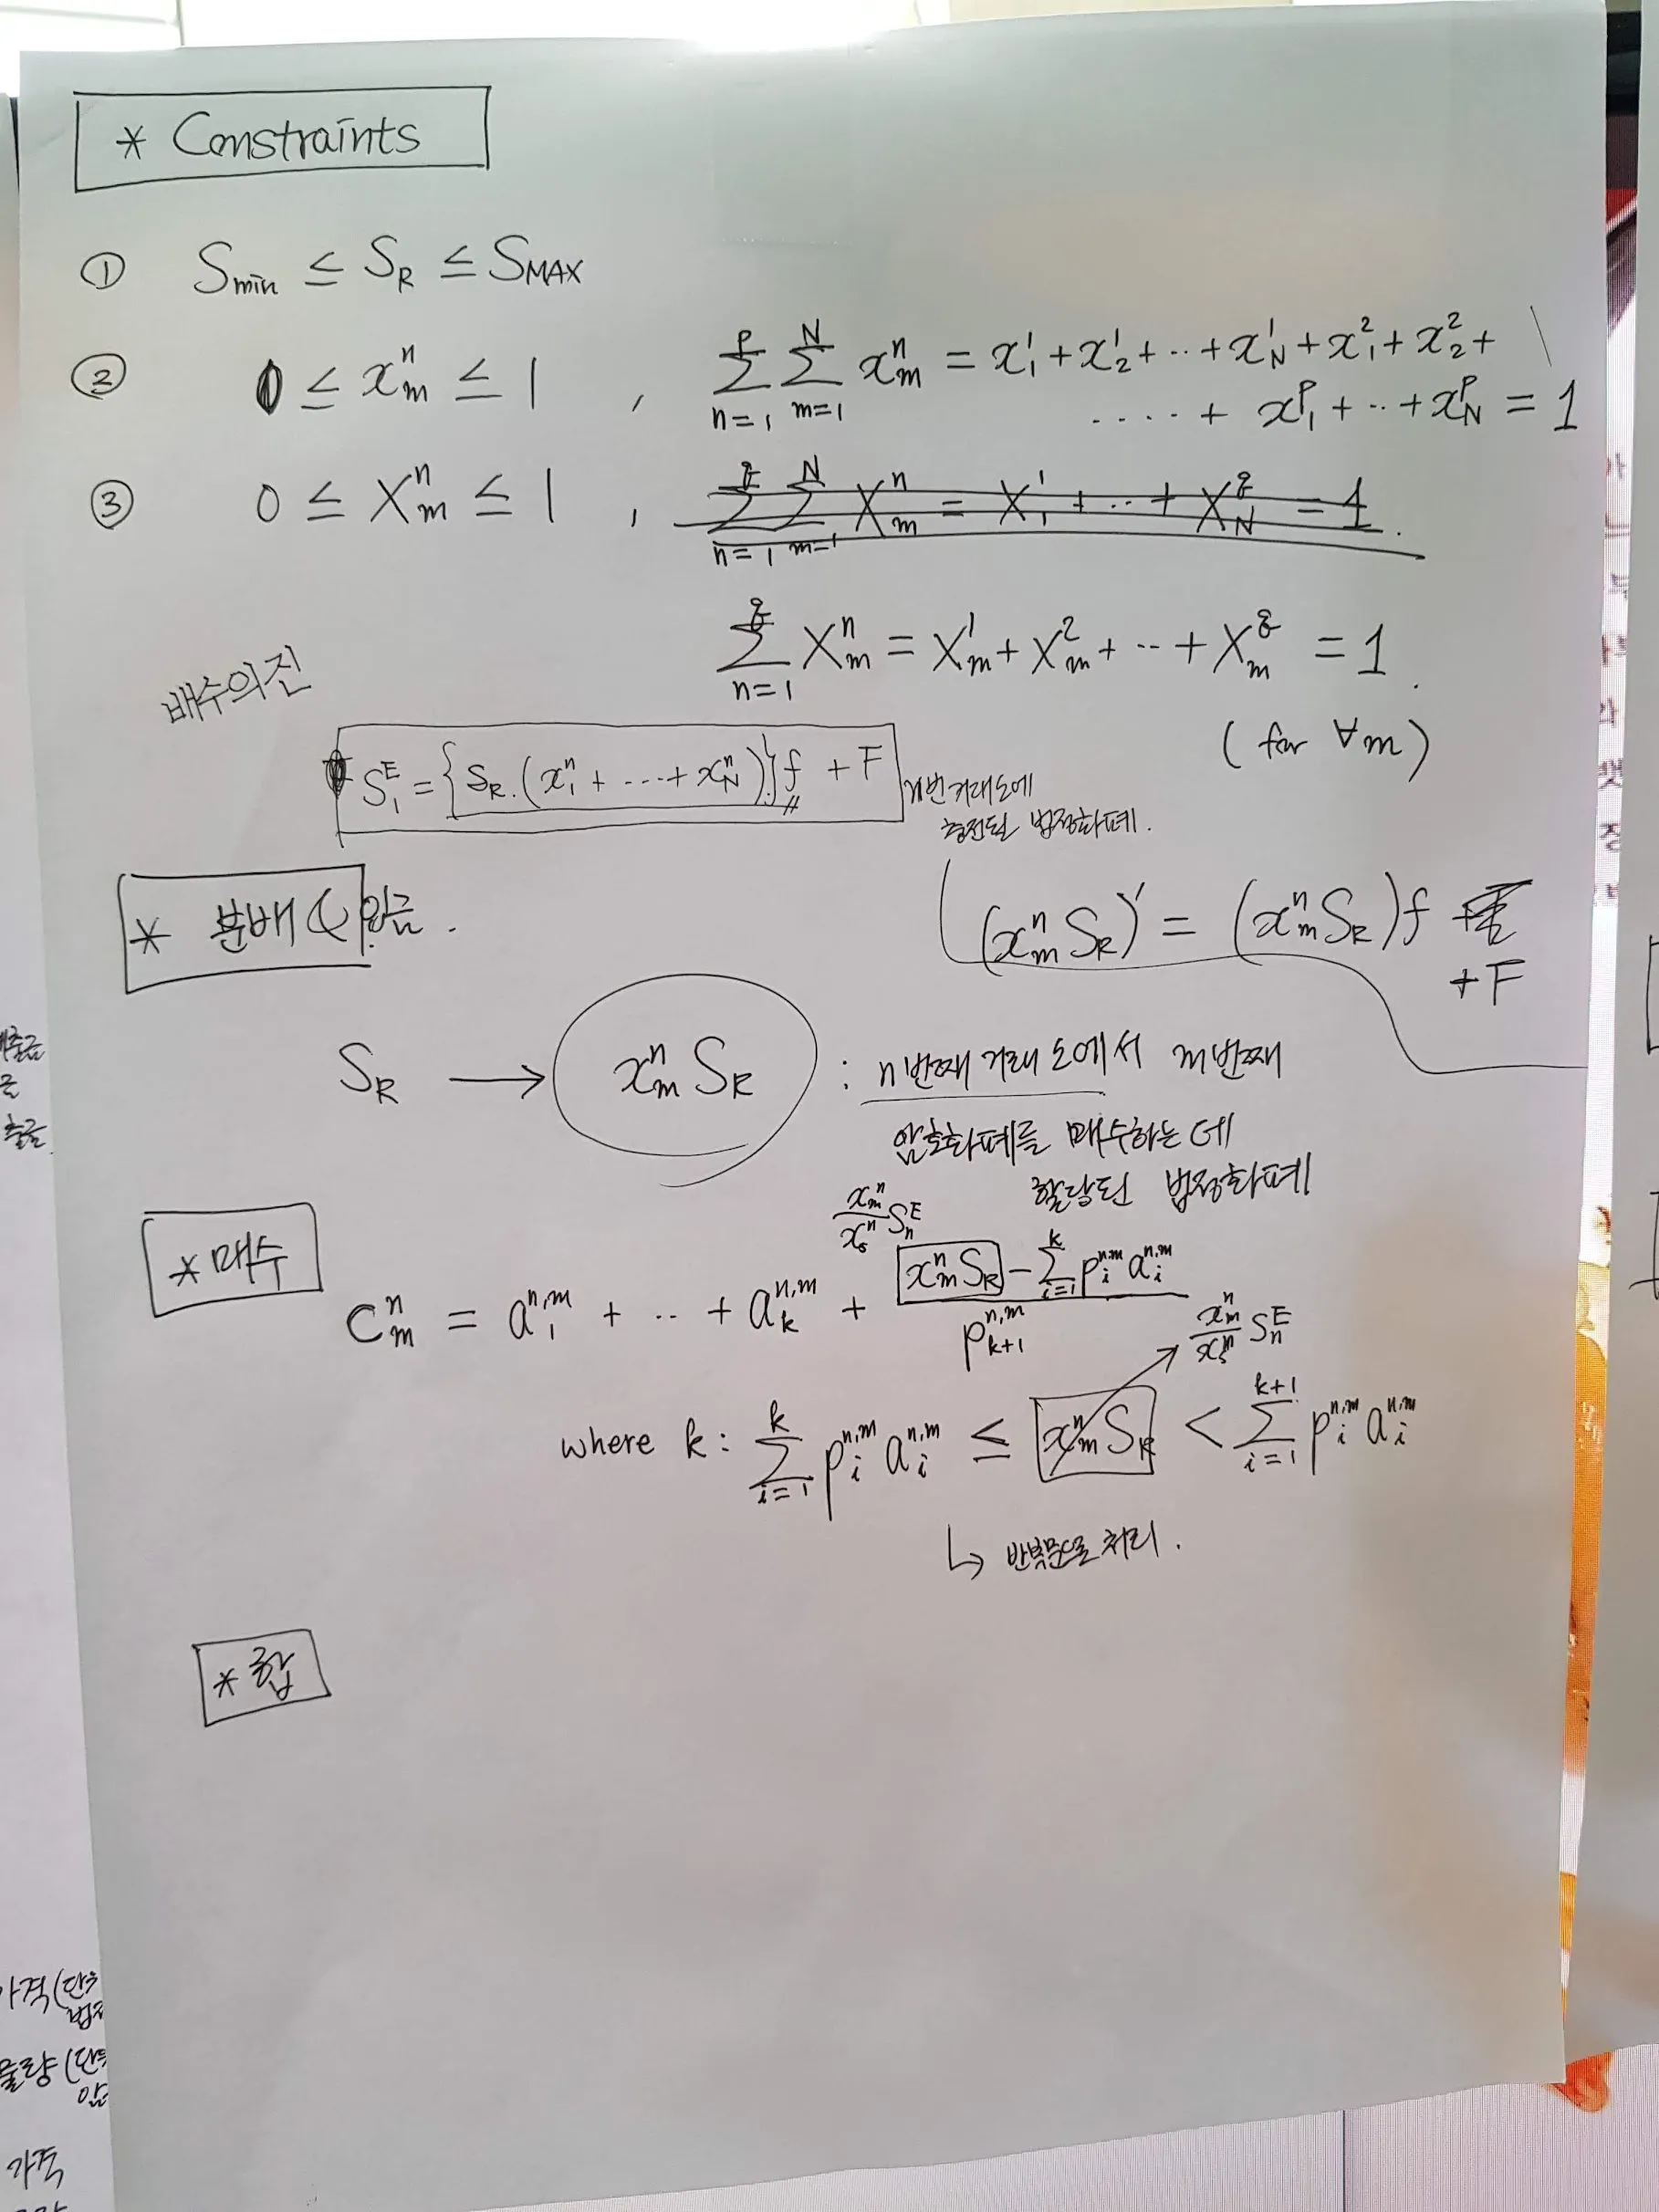 * Constraints
① S_min ≤ S_R ≤ S_MAX
② 0 ≤ x_m^n ≤ 1 , Σ_{n=1}^{P} Σ_{m=1}^{N} x_m^n = x_1^1 + x_2^1 + ·· + x_N^1 + x_1^2 + x_2^2 +
···· + x_1^P + ·· + x_N^P = 1
③ 0 ≤ X_m^n ≤ 1 , Σ_{n=1}^{q} Σ_{m=1}^{N} X_m^n = X_1^1 + ·· + X_N^q = 1.
Σ_{n=1}^{q} X_m^n = X_m^1 + X_m^2 + ·· + X_m^q = 1.
(for ∀m)
배수의진
S_1^E = {S_R·(x_1^n + ···+ x_N^n)}f + F
n번거래소에
충전된 법정화폐.
* 분배 & 입금.
(x_m^n S_R)' = (x_m^n S_R)f
+F
S_R → x_m^n S_R : n번째 거래소에서 m번째
암호화폐를 매수하는데
할당된 법정화폐
* 매수
x_m^n / x_s^n S_n^E
C_m^n = a_1^{n,m} + ·· + a_k^{n,m} + (x_m^n S_R − Σ_{i=1}^{k} p_i^{n,m} a_i^{n,m}) / p_{k+1}^{n,m}
x_m^n / x_s^n S_n^E
where k : Σ_{i=1}^{k} p_i^{n,m} a_i^{n,m} ≤ x_m^n S_R < Σ_{i=1}^{k+1} p_i^{n,m} a_i^{n,m}
↳ 반복문으로 처리.
* 합
출금
가격(단위
물량(단위
가격